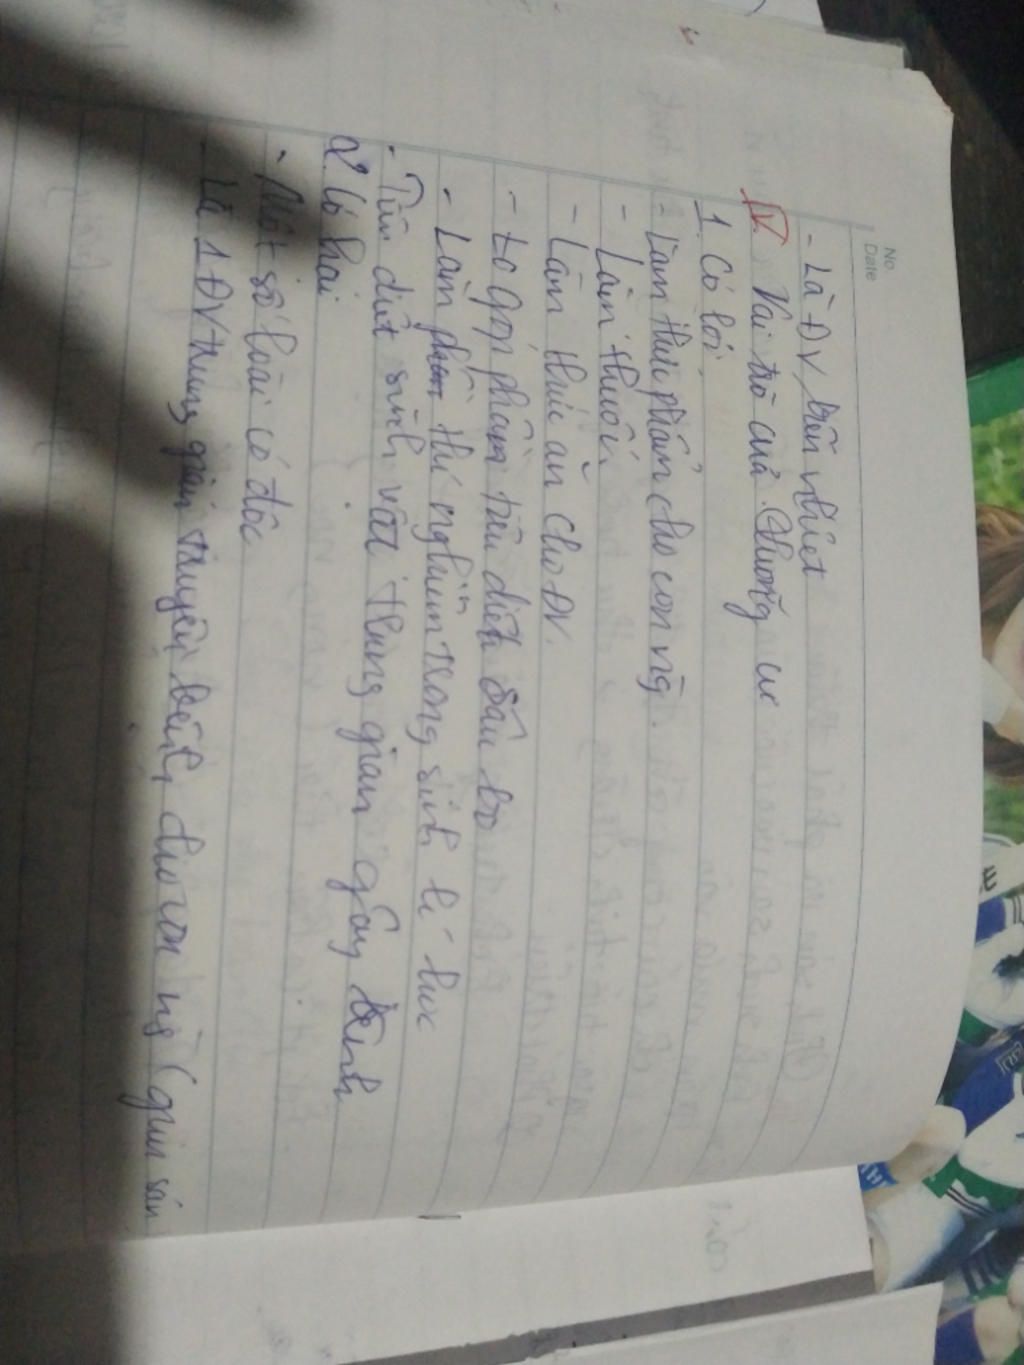 No.
Date
- Là ĐV biến nhiệt
IV. Vai trò của lưỡng cư
1. Có lợi
- Làm thực phẩm cho con ng`.
- Làm thuốc
- Làm thức ăn cho ĐV.
- Góp phần tiêu diệt sâu bọ
- Làm thí nghiệm trong sinh lí học
- Tiêu diệt sinh vật trung gian gây bệnh
2. Có hại
- Một số loài có độc
- Là 1 ĐV trung gian truyền bệnh cho con ng` (giun sán